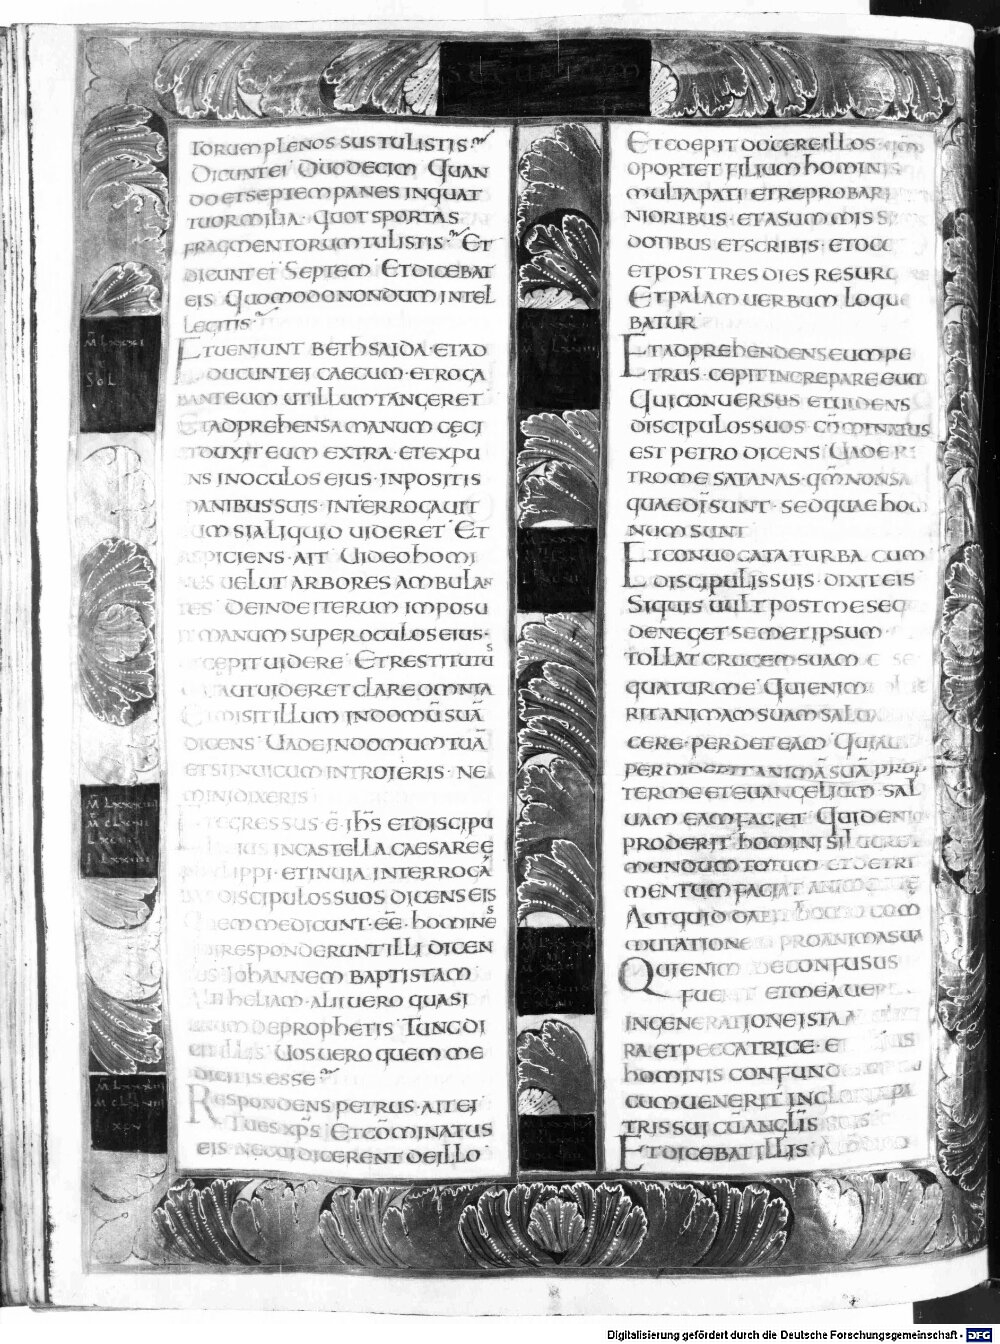 SECUNDUM
TORUM PLENOS SUSTULISTIS
DICUNT EI DUODECIM QUAN
DO ET SEPTEM PANES IN QUAT
TUOR MILIA · QUOT SPORTAS
FRAGMENTORUM TULISTIS ET
DICUNT EI SEPTEM ET DICEBAT
EIS QUOMODO NONDUM INTEL
LEGITIS
ET UENIUNT BETHSAIDA · ET AD
DUCUNT EI CAECUM · ET ROGA
BANT EUM UT ILLUM TANGERET
ET ADPREHENSA MANUM CECI
DUXIT EUM EXTRA · ET EXPU
NS IN OCULOS EIUS · INPOSITIS
MANIBUS SUIS · INTERROGAUIT
UM SI ALIQUID UIDERET ET
ASPICIENS · AIT UIDEO HOMI
NES UELUT ARBORES AMBULAN
TES DEINDE ITERUM IMPOSU
IT MANUM SUPER OCULOS EIUS ·
CEPIT UIDERE ET RESTITUTUS
UT UIDERET CLARE OMNIA
ET MISIT ILLUM IN DOMŪ SUĀ
DICENS UADE IN DOMUM TUĀ
ET SI IN UICUM INTROIERIS · NE
MINI DIXERIS
ET EGRESSUS Ē · IHS ET DISCIPU
LI EIUS IN CASTELLA CAESAREE
PHILIPPI · ET IN UIA INTERROGA
BAT DISCIPULOS SUOS DICENS EIS
QUEM ME DICUNT · EE · HOMINES
QUI RESPONDERUNT ILLI DICEN
TES IOHANNEM BAPTISTAM
ALII HELIAM · ALII UERO QUASI
UNUM DE PROPHETIS TUNC DI
CIT ILLIS UOS UERO QUEM ME
DICITIS ESSE
RESPONDENS PETRUS · AIT EI
TU ES XPS ET COMINATUS
EIS NE CUI DICERENT DE ILLO
ET COEPIT DOCERE ILLOS QM
OPORTET FILIUM HOMINIS
MULTA PATI ET REPROBARI
NIORIBUS · ET A SUMMIS S
DOTIBUS ET SCRIBIS · ET OCC
ET POST TRES DIES RESURG
ET PALAM UERBUM LOQUE
BATUR
ET ADPREHENDENS EUM PE
TRUS · CEPIT INCREPARE EUM
QUI CONUERSUS ET UIDENS
DISCIPULOS SUOS CŌMINATUS
EST PETRO DICENS UADE R
TRO ME SATANAS · QM NON SA
QUAE DĪ SUNT · SED QUAE HOM
NUM SUNT
ET CONUOCATA TURBA CUM
DISCIPULIS SUIS · DIXIT EIS
SI QUIS UULT POST ME SEQ
DENEGET SEMET IPSUM
TOLLAT CRUCEM SUAM E SE
QUATUR ME QUI ENIM
RIT ANIMAM SUAM SALUA
CERE · PERDET EAM QUI AU
PERDIDERIT ANIMĀ SUĀ PROP
TER ME ET EUANGELIUM · SAL
UAM EAM FACIET QUID ENI
PRODERIT HOMINI SI LUCRET
MUNDUM TOTUM · ET DETRI
MENTUM FACIAT ANIMAE SUĘ
AUT QUID DABIT HOMO COM
MUTATIONE PRO ANIMA SUA
QUI ENIM ME CONFUSUS
FUERIT ET MEA UER
IN GENERATIONE ISTA A
RA ET PECCATRICE · ET IUS
HOMINIS CONFUND
CUM UENERIT IN GLORIA PA
TRIS SUI CŪ ANGLĪS
ET DICEBAT ILLIS
Digitalisierung gefördert durch die Deutsche Forschungsgemeinschaft - DFG